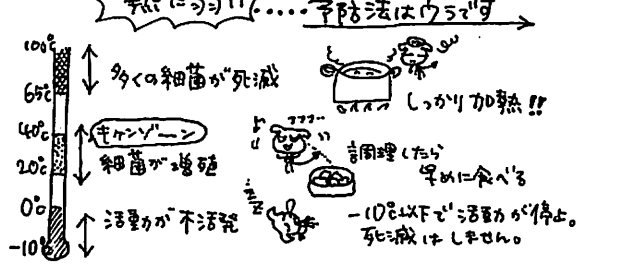 予防法はウラです
100℃
65℃
40℃
20℃
0℃
-10℃
多くの細菌が死滅
キケンゾーン
細菌が増殖
活動が不活発
しっかり加熱!!
調理したら
早めに食べる
zzz
-10℃以下で活動が停止。
死滅はしません。